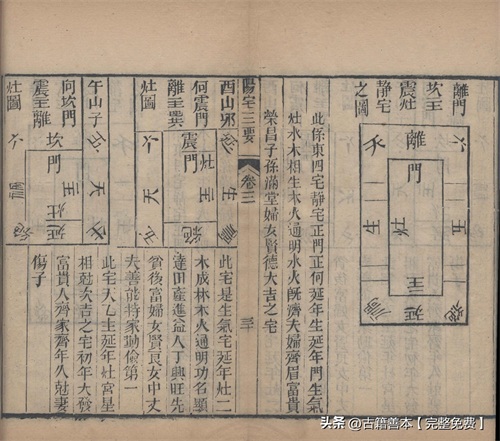 離門
坎主
震灶
靜宅
之圖
六 離 天
門
五
灶
生
主
禍 延 絕
此係東四宅靜宅正門正何延年生延年門生氣
灶水木相生木火通明水火旣濟夫婦齊眉富貴
榮昌子孫滿堂婦女賢德大吉之宅
陽宅三要 卷三 三十
酉山夘
何震門
離主巽
震
門
灶
主
生
天
禍
絕
此宅是生氣宅延年灶二
木成林木火通明功名顯
達田產進益人丁興旺先
貧後富婦女賢良女中丈
夫善能持家勤儉第一
午山子
向坎門
震主離
灶圖
坎
門
主
灶
天
延
禍
六
此宅天乙生延年灶宮星
相尅次吉之宅初年大發
富貴人齊家齊年久尅妻
傷子
头条 @古籍善本【完整免费】